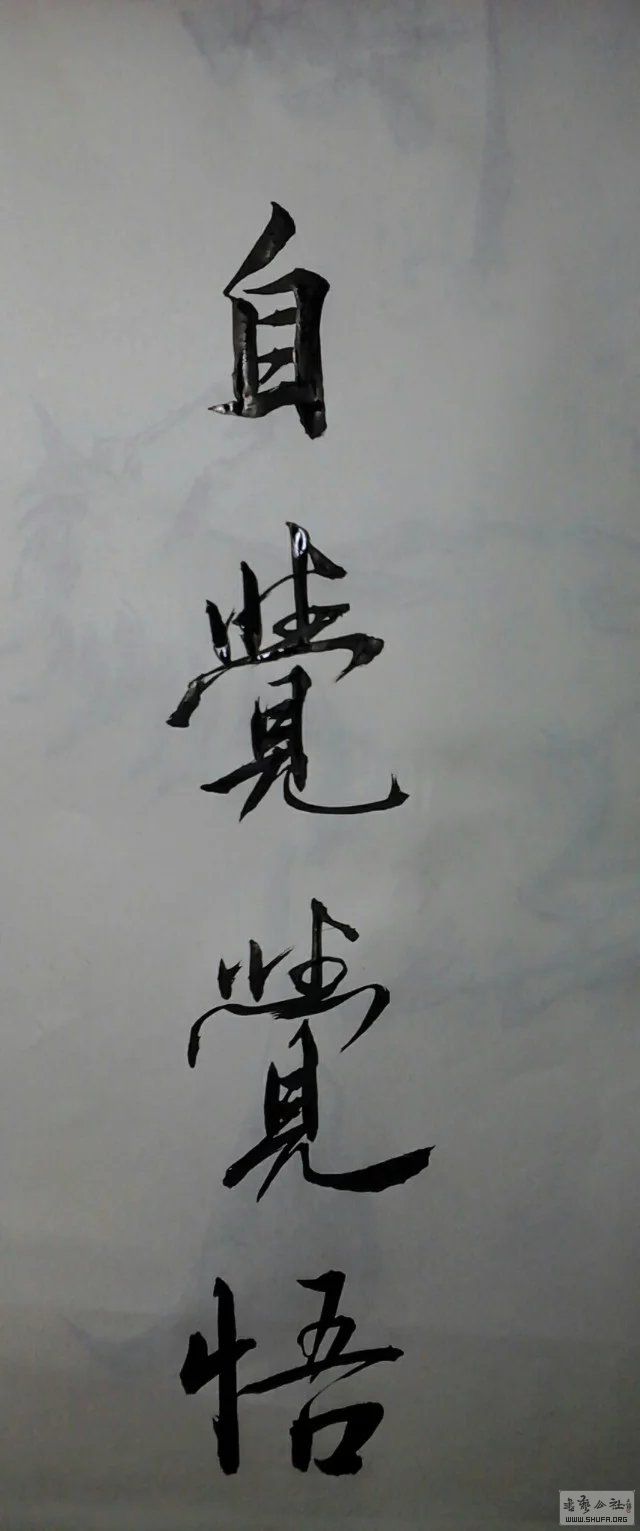 自覺覺悟
书艺公社
WWW.SHUFA.ORG